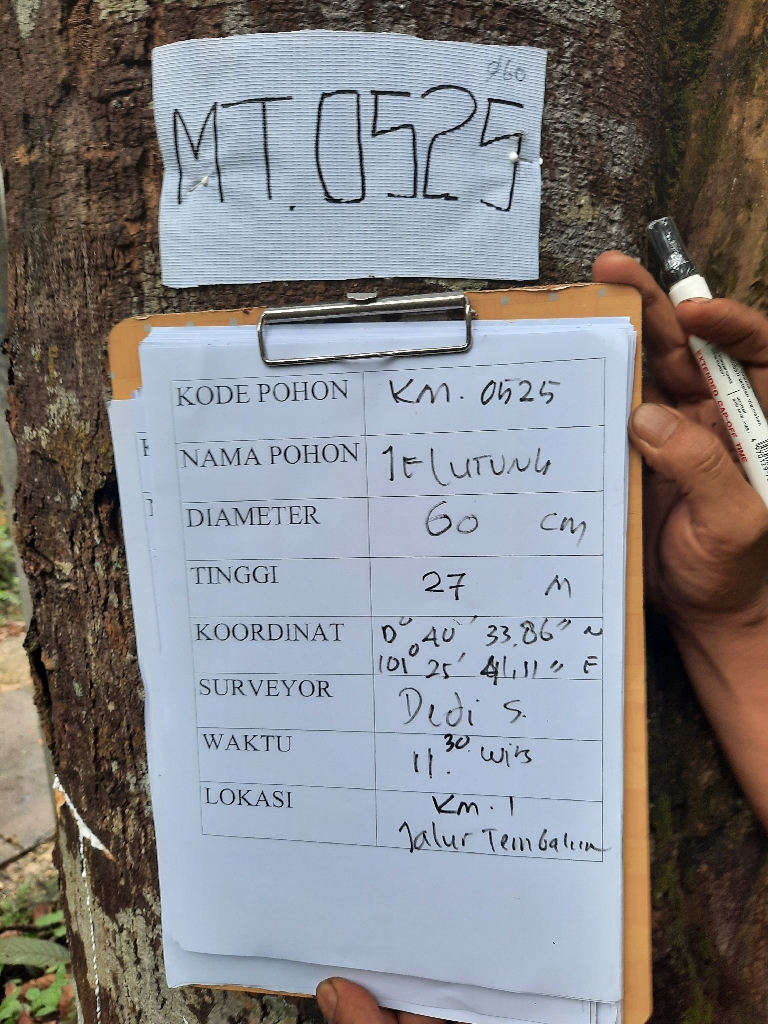 ø60
MT.0525
KODE POHON KM. 0525
NAMA POHON JELUTUNG
DIAMETER 60 cm
TINGGI 27 M
KOORDINAT 0° 40' 33.86" N
101° 25' 41.11" E
SURVEYOR Dedi S.
WAKTU 11.30 Wib
LOKASI KM. 1
Jalur Tembalun
EXTENDED CAP-OFF TIME